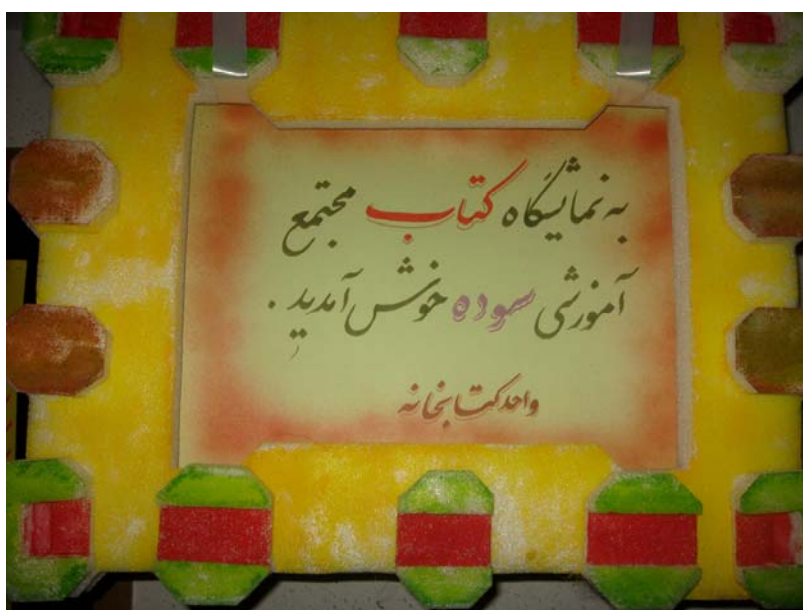 به نمایشگاه کتاب مجتمع
آموزشی سوده خوش آمدید.
واحد کتابخانه